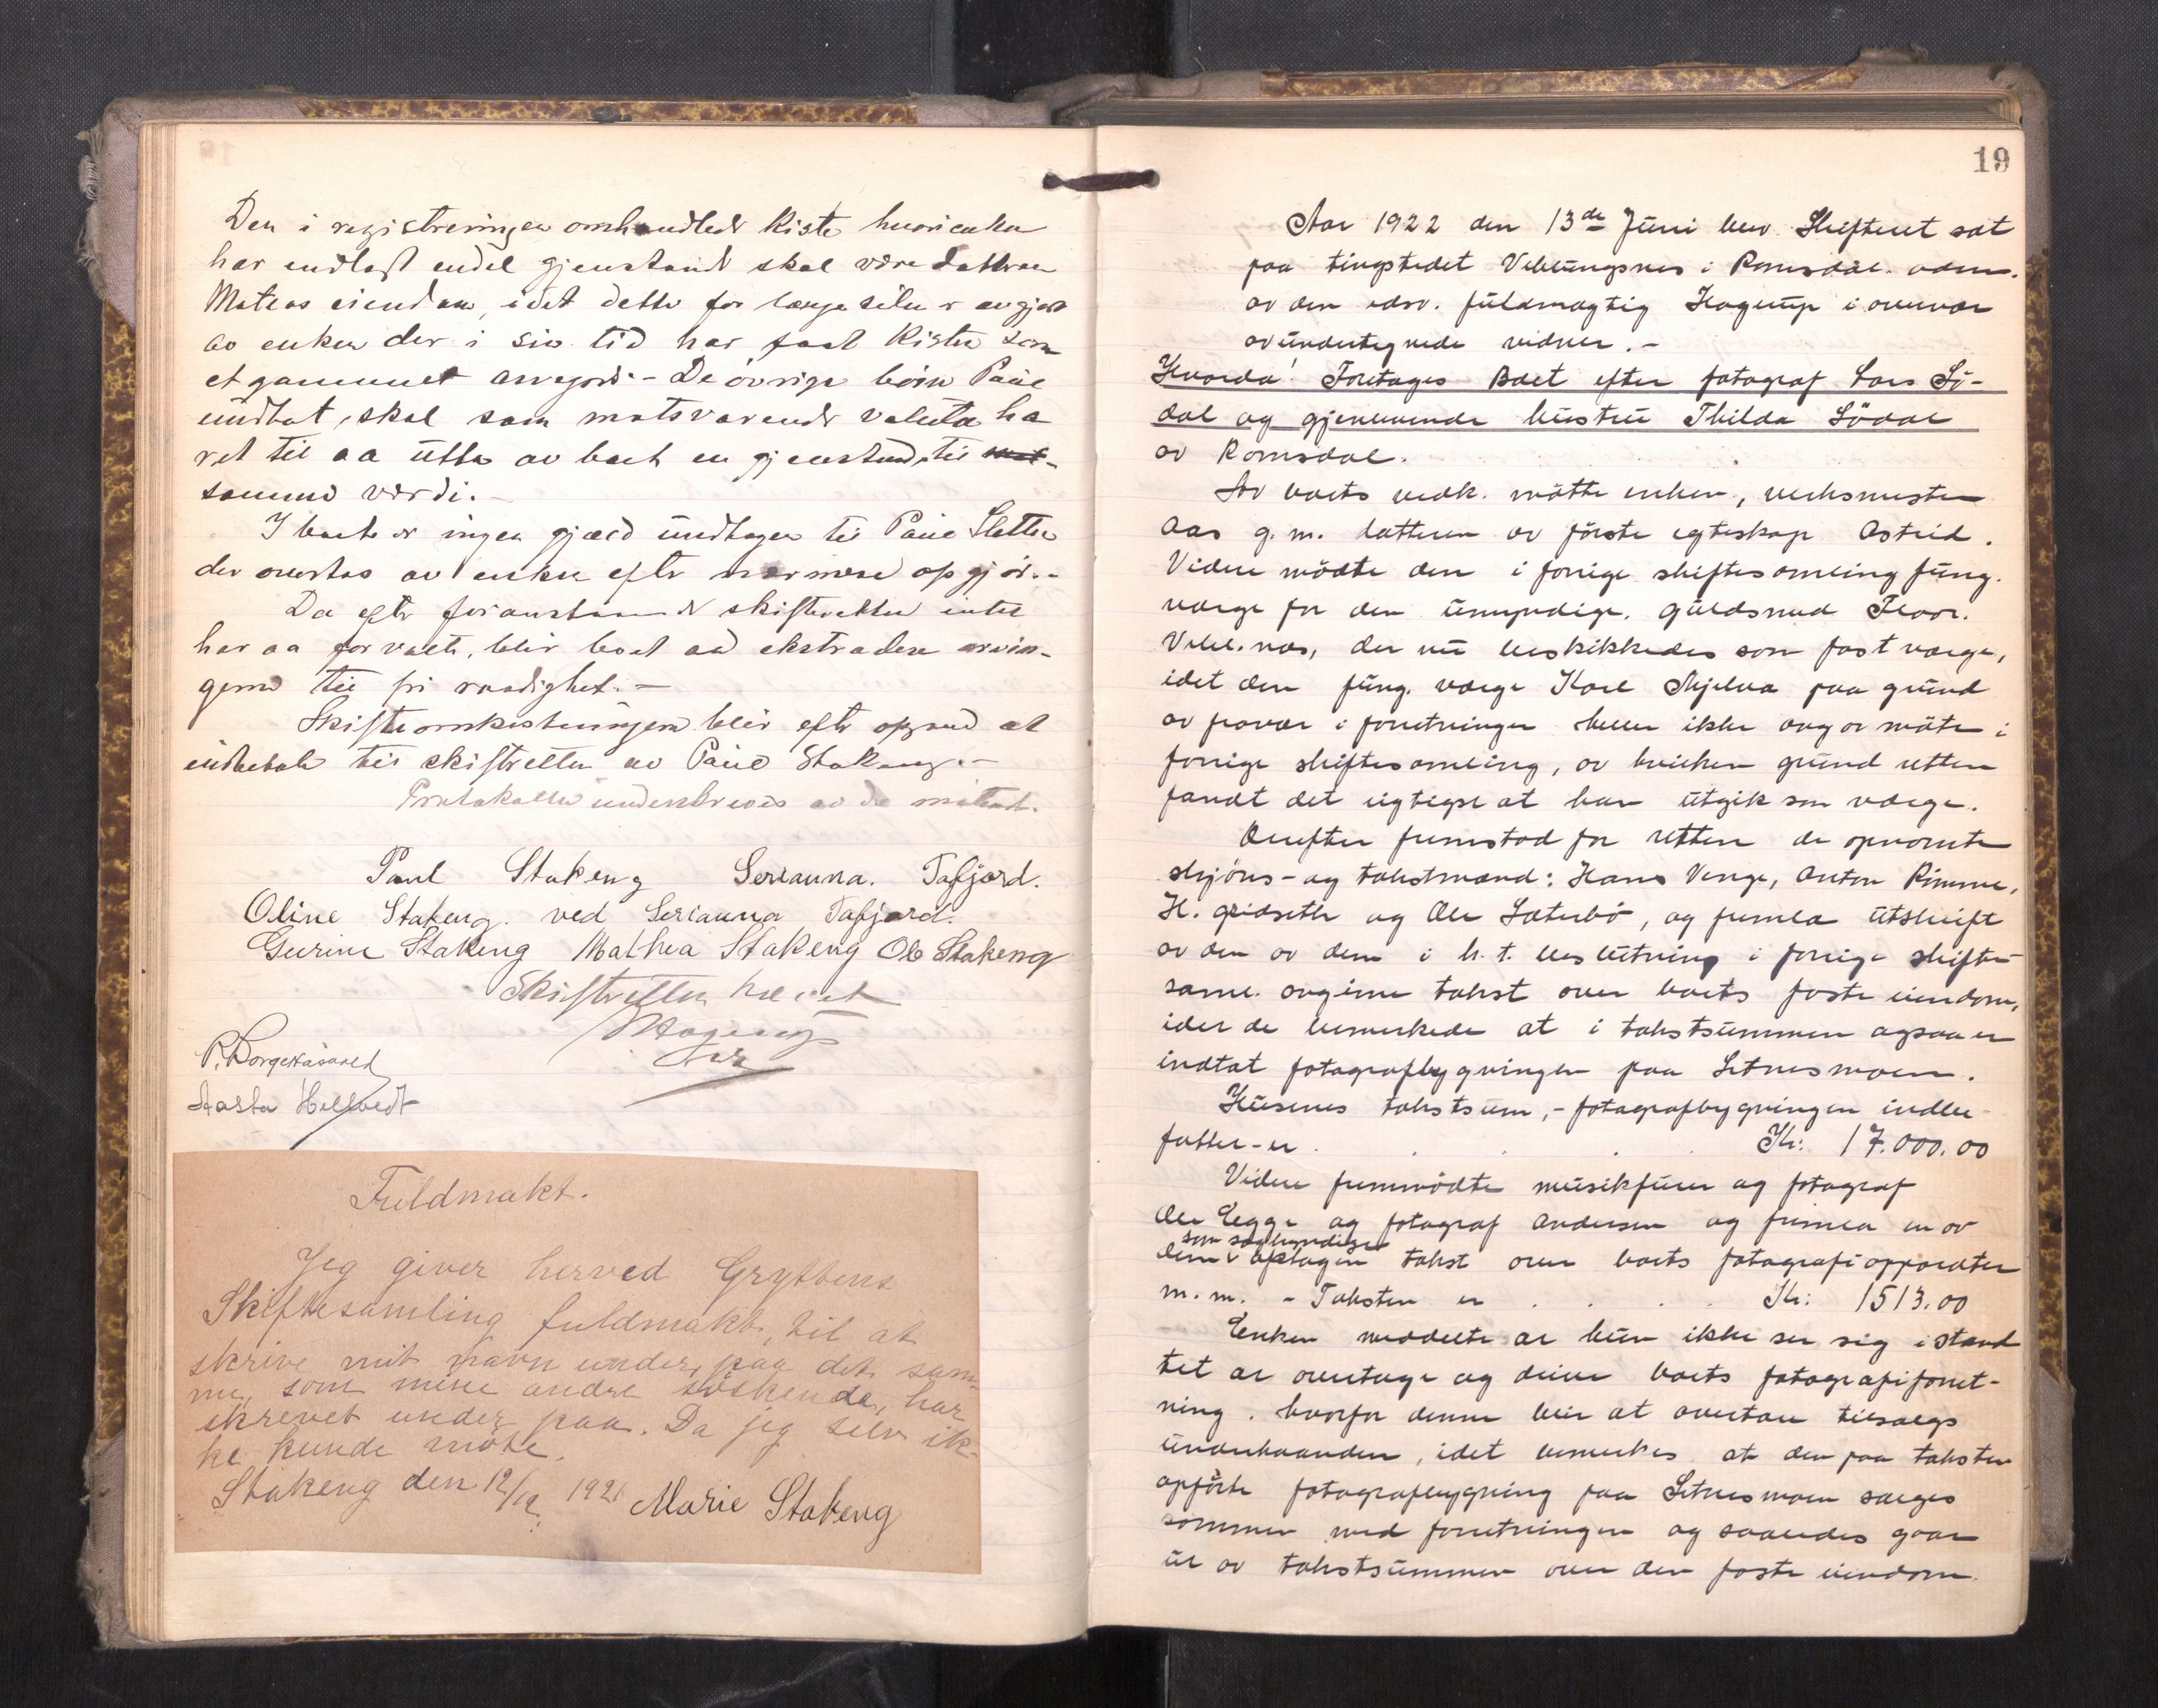 Den i registreringen omhandlede Kiste hvori enken
har indlagt endel gjenstande skal være datteren
Mateas eiendom, idet dette for længe siden er avgjort
av enken der i sin tid har faat Kisten som
et gammelt arvegods. - De övrige börn Paul
undtat, skal som motsvarende valuta ha
ret til aa utta av boet en gjenstand til
samme værdi. -
I boet er ingen gjæld undtagen til Paul Sletten
der overtas av enken efter nærmere opgjör. -
Da efter foranstaaende skifteretten intet
har aa forvalte, blir boet at ekstradere arvin-
gerne til fri raadighet. -
Skifteomkostningerne blir efter opgave at
indbetale til skifteretten av Paul Stakeng. -
Protokollen underskrives av de mötende.
Paul Stakeng Serianna. Tafjord.
Oline Stakeng. ved Serianna Tafjord.
Gurine Stakeng Mathea Stakeng Ole Stakeng
Skifteretten hævet
Hagerup
P. Borgekaasveld
Aasta Helsvedt
Fuldmakt.
Jeg giver herved Gryttens
Skiftesamling fuldmakt, til at
skrive mit navn under, paa det sam-
me, som mine andre söskende, har
skrevet under paa. Da jeg selv ik-
ke kunde möte.
Stakeng den 12/12. 1921 Marie Stakeng
19
Aar 1922 den 13de Juni blev Skifteret sat
paa tingstedet Veblungsnes i Romsdal. adm.
av den edsv. fuldmægtig Hagerup i overvær
av undertegnede vidner. -
Hvorda! Foretages Boet efter fotograf Lars Sö-
dal og gjenlevende hustru Thilda Södal
av Romsdal.
For boets vedk. mötte enken, verksmester
Aas g. m. datteren av förste egteskap Astrid.
Videre mödte den i forrige skiftesamling fung.
værge for den umyndige, guldsmed Floor.
Vebl.næs, der nu beskikkedes som fast værge,
idet den fung. værge Karl Mjelva paa grund
av fravær i forretninger heller ikke avgav möte i
forrige skiftesamling, av hvilken grund retten
fandt det rigtigst at han utgik som værge.
Derefter fremstod for retten de opnævnte
skjöns- og takstmænd: Hans Venge, Anton Rimme,
H. Gridseth og Ole Sæterbö, og fremla utskrift
av den av dem i h. t. beslutning i forrige skifte-
saml. avgivne takst over boets faste eiendom,
idet de bemerkede at i takstsummen ogsaa er
indtat fotografbygningen paa Setnesmoen.
Husenes takstsum, - fotografbygningen indbe-
fattet - er . . . . Kr: 17.000.00
Videre fremmödte musikfører og fotograf
Ole Legge og fotograf Andersen og fremla en av
som sagkyndige
dem optagen takst over boets fotografiapparater
m.m. - Taksten er . . . . Kr: 1513.00
Enken meddelte at hun ikke ser sig istand
til at overtage og drive boets fotografiforret-
ning. hvorfor denne blir at avertere tilsalgs
underhaanden, idet bemerkes at den paa taksten
opförte fotografbygning paa Setnesmoen sælges
sammen med forretningen og saaledes gaar
ut av takstsummen over den faste eiendom.